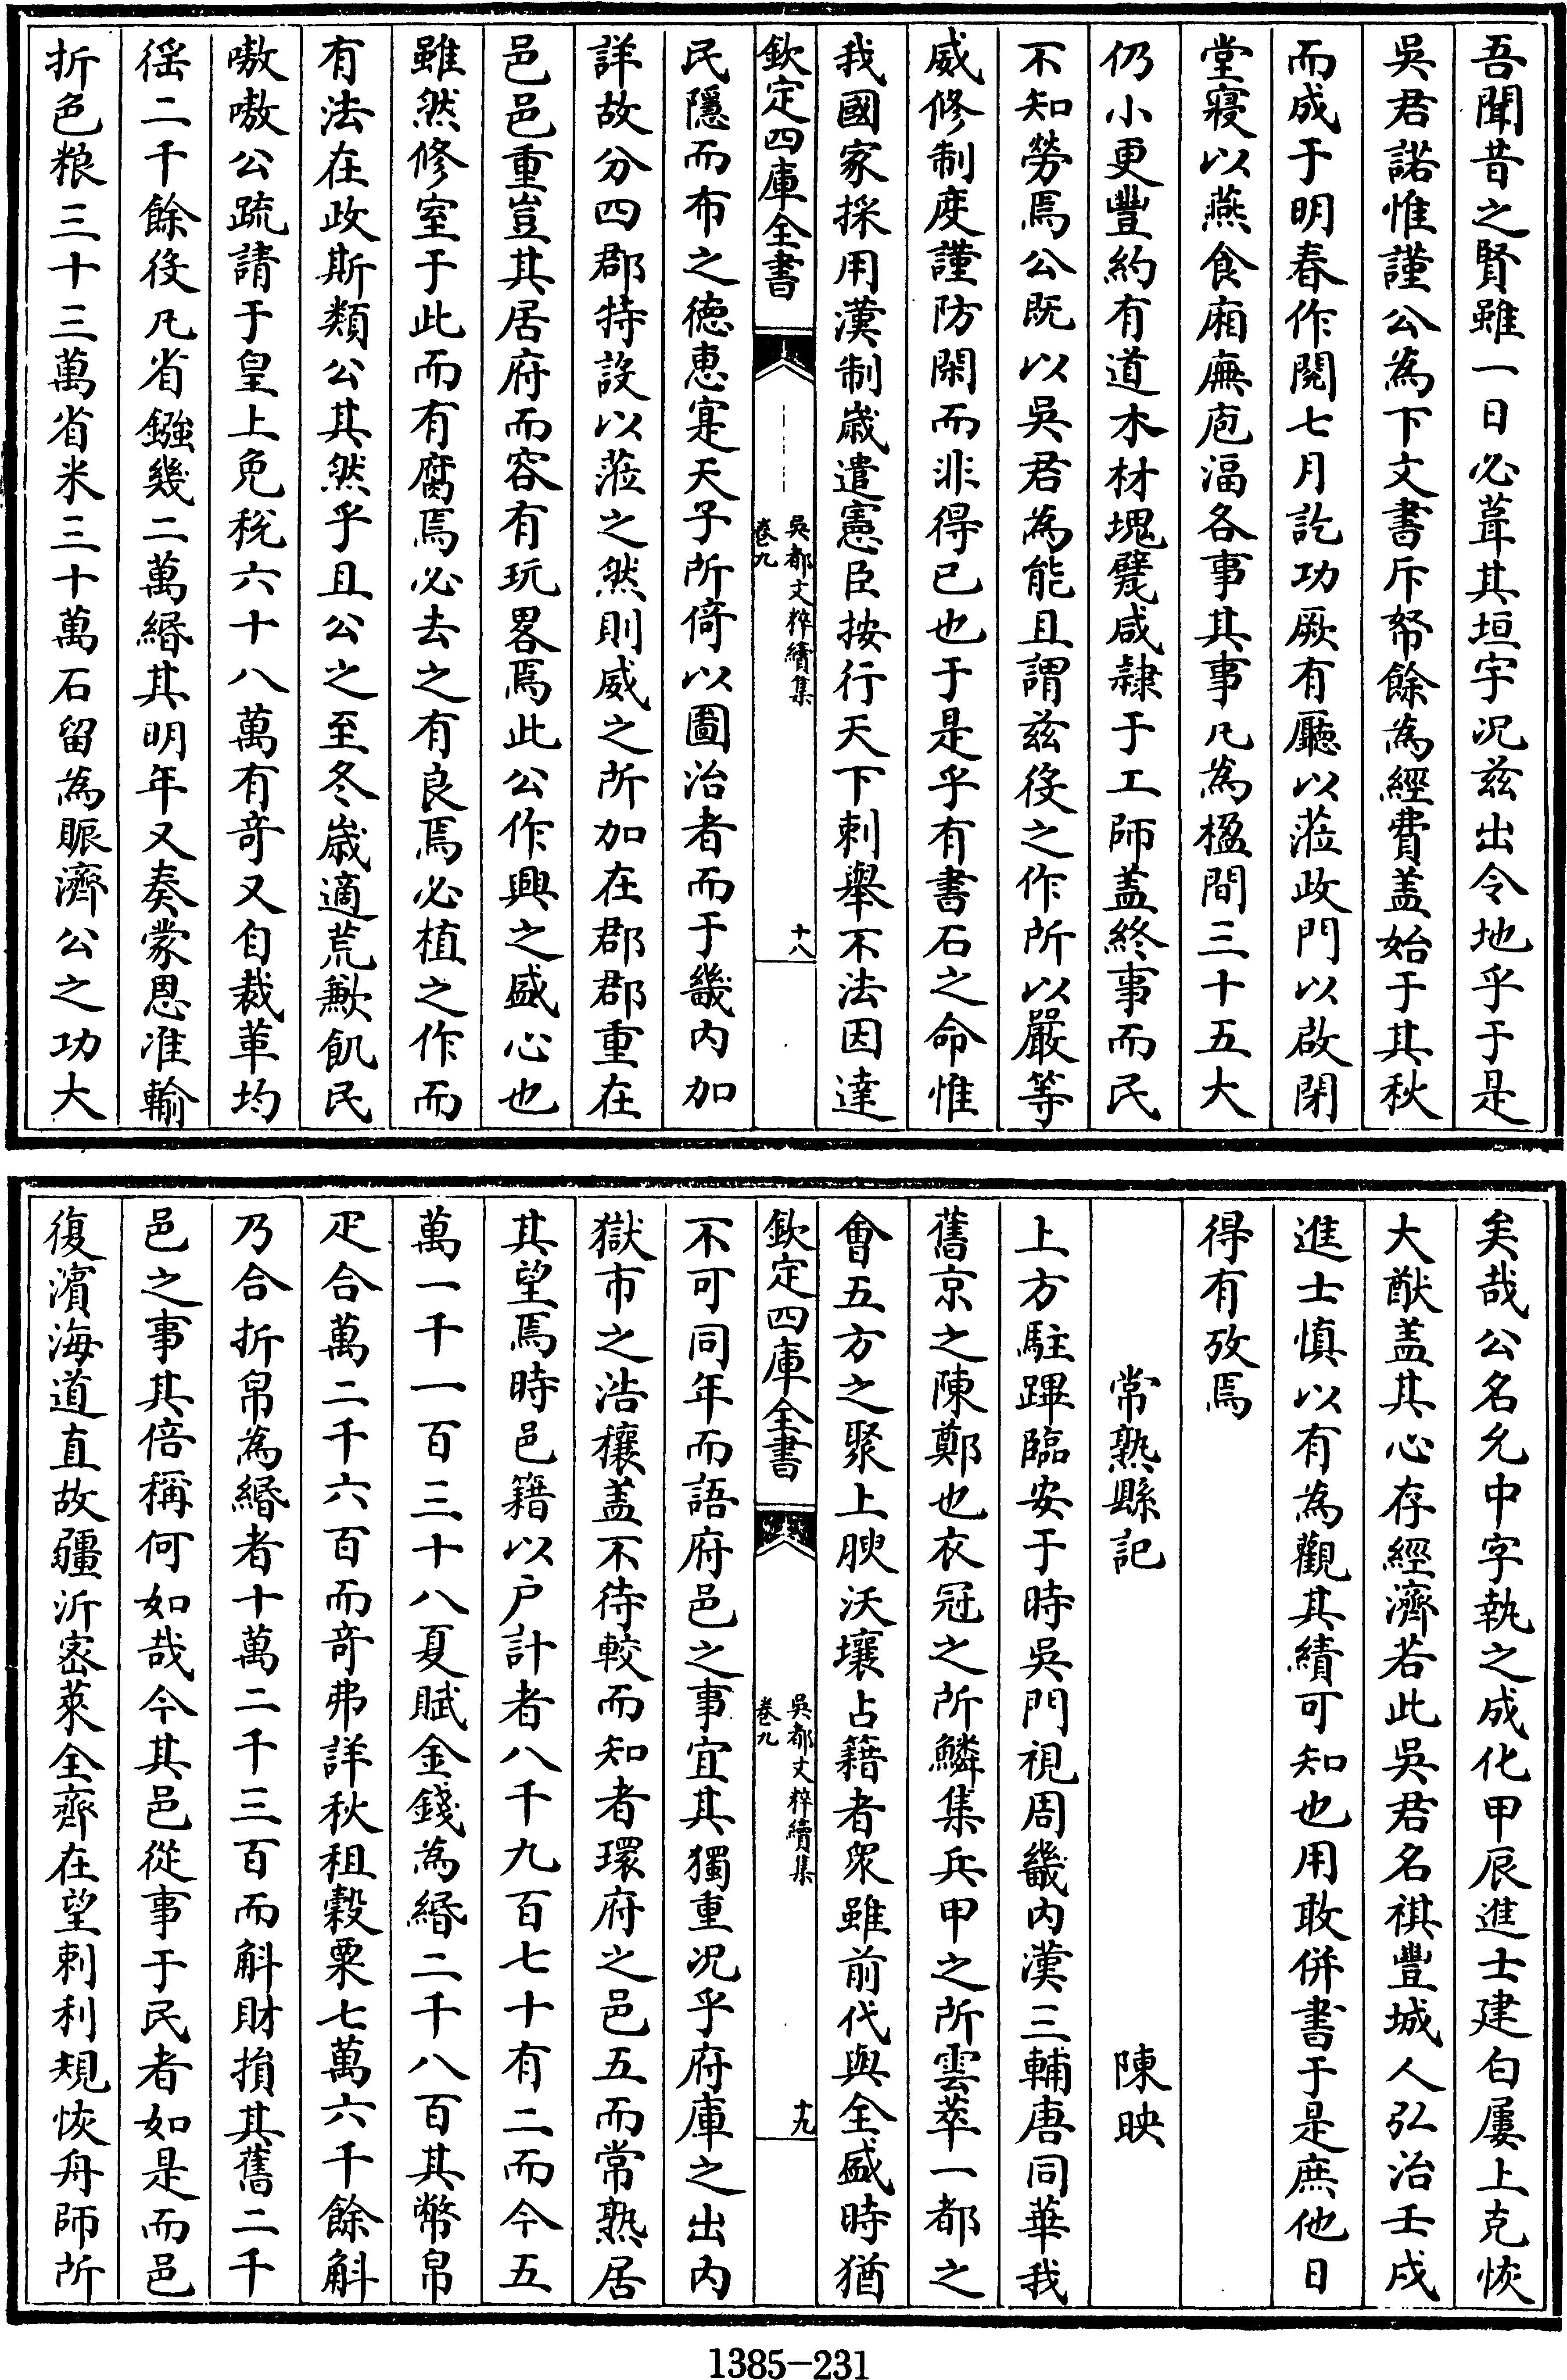 吾聞昔之賢雖一日必葺其垣宇况兹出令地乎于是
吳君諾惟謹公為下文書斥帑餘為經費盖始于其秋
而成于明春作閱七月訖功厥有廳以蒞政門以啟閉
堂寢以燕食廂廡庖湢各事其事凡為楹間三十五大
仍小更豐約有道木材塊甓咸隷于工師盖終事而民
不知勞焉公既以吳君為能且謂兹役之作所以嚴等
威修制度謹防閑而非得已也于是乎有書石之命惟
我國家採用漢制歲遣憲臣按行天下刺舉不法因達
欽定四庫全書
吳都文粹續集
卷九
十八
民隱而布之徳惠寔天子所倚以圖治者而于畿内加
詳故分四郡特設以蒞之然則威之所加在郡郡重在
邑邑重豈其居府而容有玩畧焉此公作興之盛心也
雖然修室于此而有腐焉必去之有良焉必植之作而
有法在政斯類公其然乎且公之至冬歲適荒歉飢民
嗷嗷公疏請于皇上免稅六十八萬有竒又自裁革均
徭二千餘役凡省鏹幾二萬緡其明年又奏蒙恩准輸
折色粮三十三萬省米三十萬石留為賑濟公之功大
矣哉公名允中字執之成化甲辰進士建白屢上克恢
大猷盖其心存經濟若此吳君名祺豐城人弘治壬戌
進士慎以有為觀其績可知也用敢併書于是庶他日
得有攷焉
常熟縣記
陳映
上方駐蹕臨安于時吳門視周畿内漢三輔唐同華我
舊京之陳鄭也衣冠之所鱗集兵甲之所雲萃一都之
會五方之聚上腴沃壤占籍者衆雖前代與全盛時猶
欽定四庫全書
吳都文粹續集
卷九
十九
不可同年而語府邑之事宜其獨重况乎府庫之出内
獄市之浩穰盖不待較而知者環府之邑五而常熟居
其望焉時邑籍以户計者八千九百七十有二而今五
萬一千一百三十八夏賦金錢為緡二千八百其幣帛
疋合萬二千六百而竒弗詳秋租穀粟七萬六千餘斛
乃合折帛為緡者十萬二千三百而斛財損其舊二千
邑之事其倍稱何如哉今其邑從事于民者如是而邑
復濱海道直故疆沂宻萊全齊在望剌利規恢舟師所
1385-231